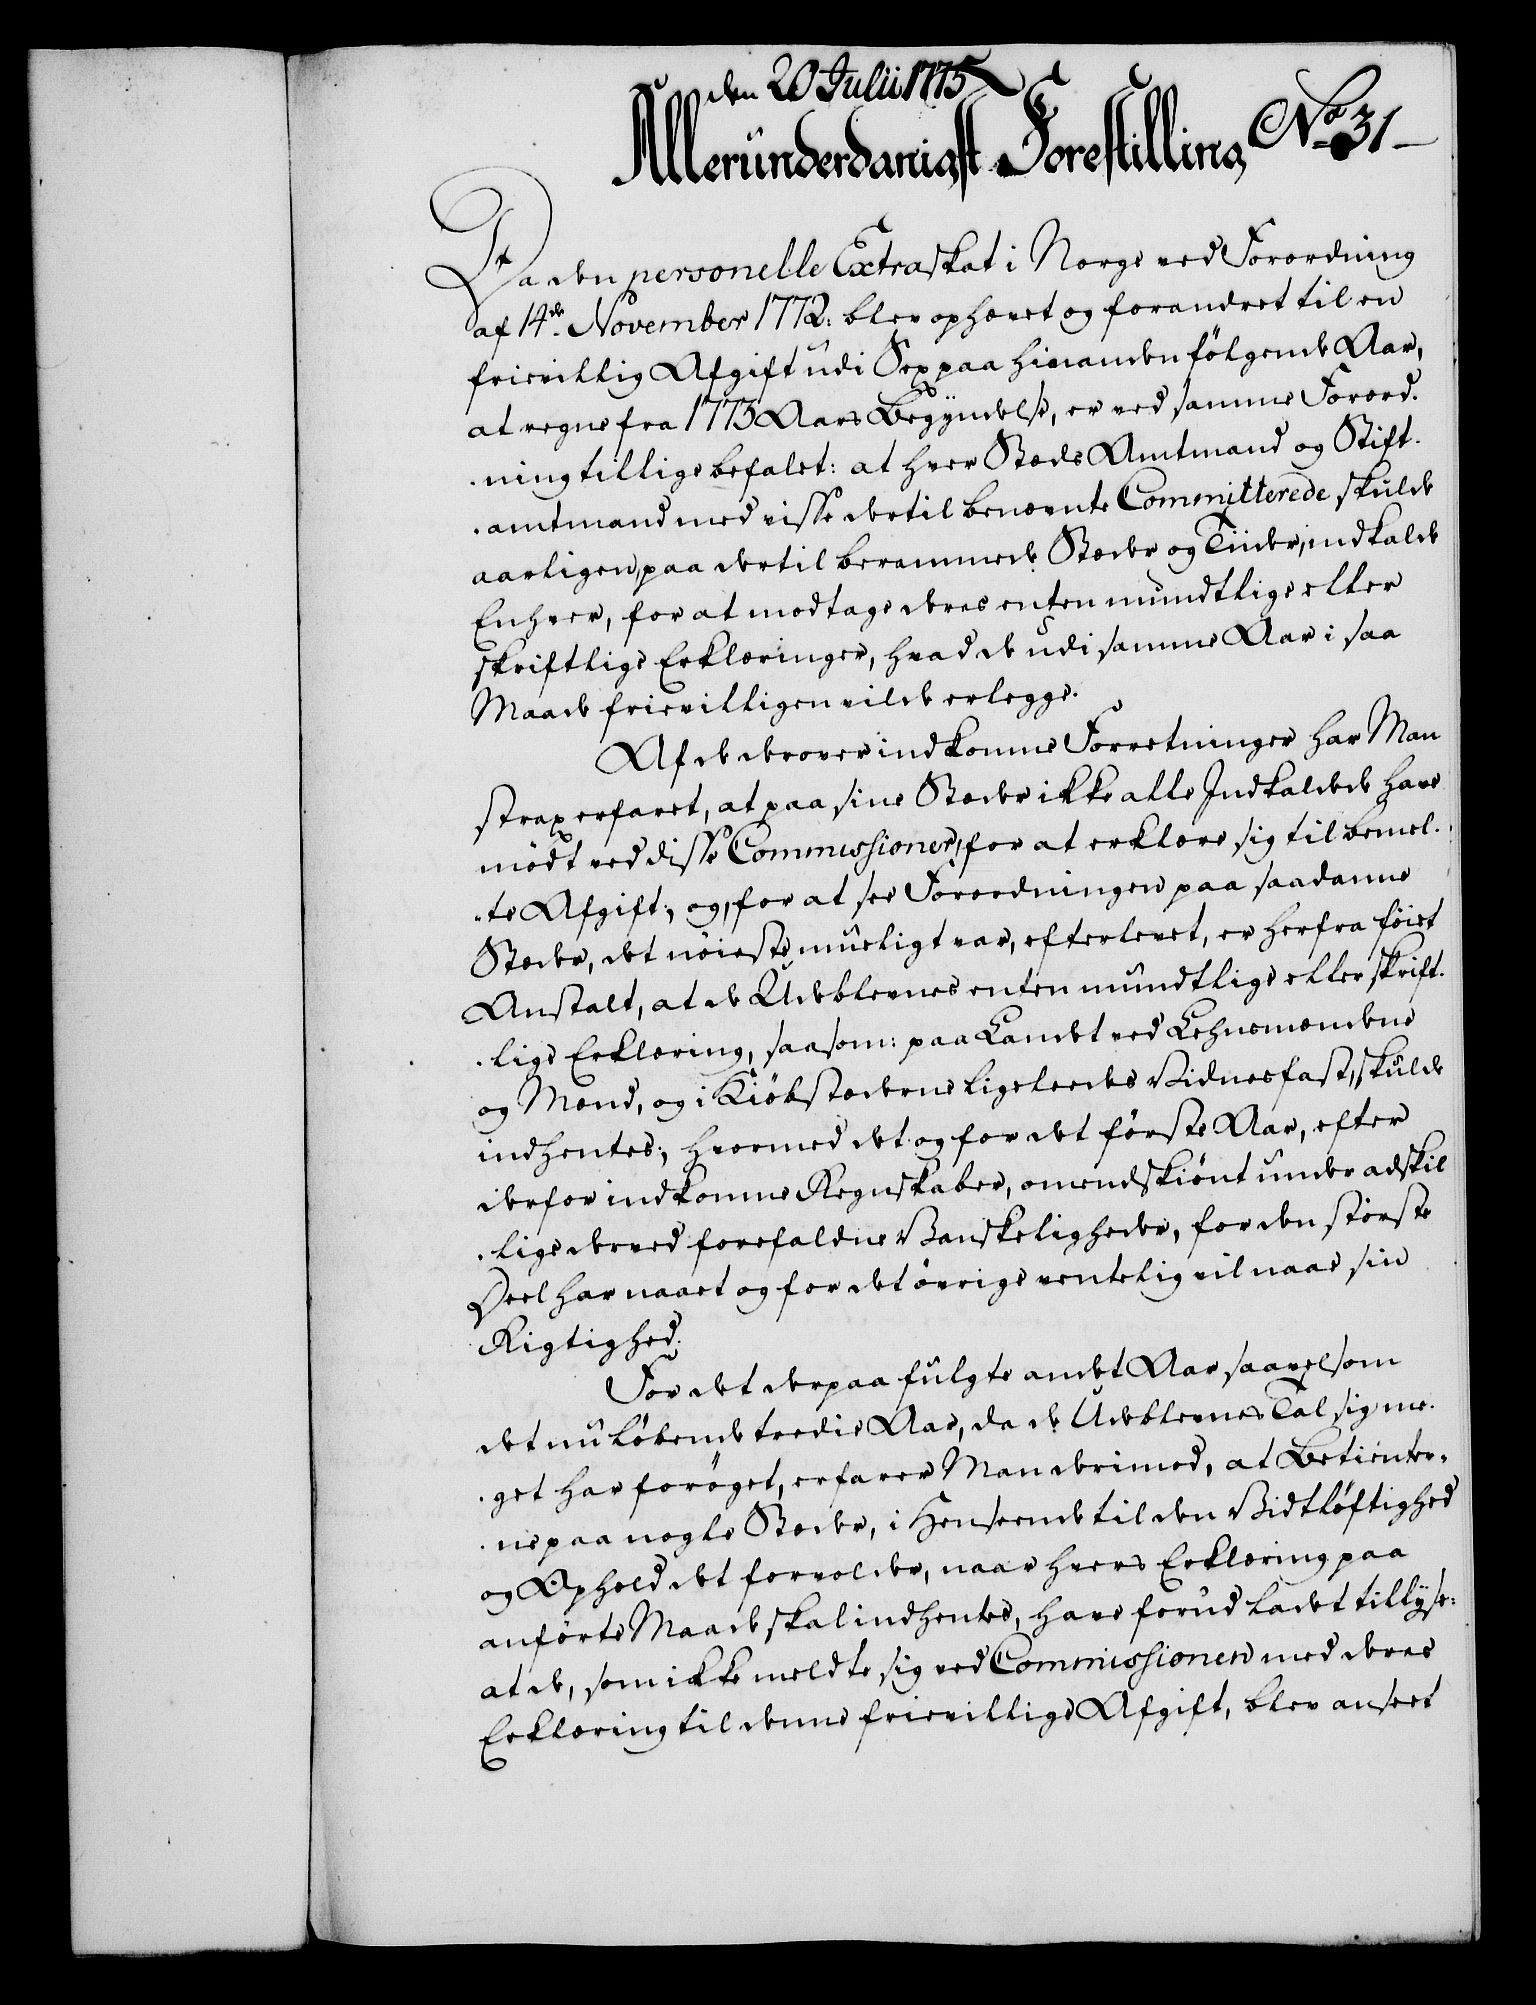 den 20 Julii 1775
Allerunderdanigst Forestilling No 31
Da den personelle Extraskat i Norge ved Forordning
af 14de November 1772: blev ophævet og forandret til en
frievillig Afgift udi Sex paa hinanden fölgende Aar,
at regne fra 1773 Aars Begyndelse, er ved samme Forord-
-ning tillige befalet: at hver Stæds Amtmand og Stift-
-amtmand med visse dertil benævnte Committerede skulde
aarligen, paa dertil berammede Stæder og Tiider, indkalde
Enhver, for at modtage deres enten mundtlige eller
skriftlige Erklæringer, hvad de udi samme Aar i saa
Maade frievilligen vilde erlegge.
Af de derover indkomne Forretninger har Man
strax erfaret, at paa sine Stæder ikke alle Indkaldede have
mödt ved disse Commissioner, for at erklære sig til bemel-
-te Afgift, og, for at see Forordningen paa saadanne
Stæder, det nöieste mueligt var, efterlevet, er herfra föiet
Anstalt, at de Udeblevnes enten mundtlige eller skrift-
-lige Erklæring, saasom: paa Landet ved Lehnsmændene
og Mænd, og i Kiöbstæderne ligeleedes Vidnesfast, skulde
indhentes, hvormed det og for det förste Aar, efter
derfor indkomne Regnskaber, omendskiönt under adskil
-lige derved forefaldne Vanskeligheder, for den störste
Deel har naaet og for det övrige ventelig vil naae sin
Rigtighed.
For det derpaa fulgte andet Aar saavelsom
det nu löbende tredie Aar, da de Udeblevnes Tal sig me-
-get har foröget, erfarer Man derimod, at Betienter-
-ne paa nogle Stæder, i Henseende til den Vidtlöftighed
og Ophold det forvolder, naar hvers Erklæring paa
anförte Maade skal indhentes, have forud ladet tillyse:
at de, som ikke meldte sig ved Commissionen med deres
Erklæring til denne frievillige Afgift, blev anseet